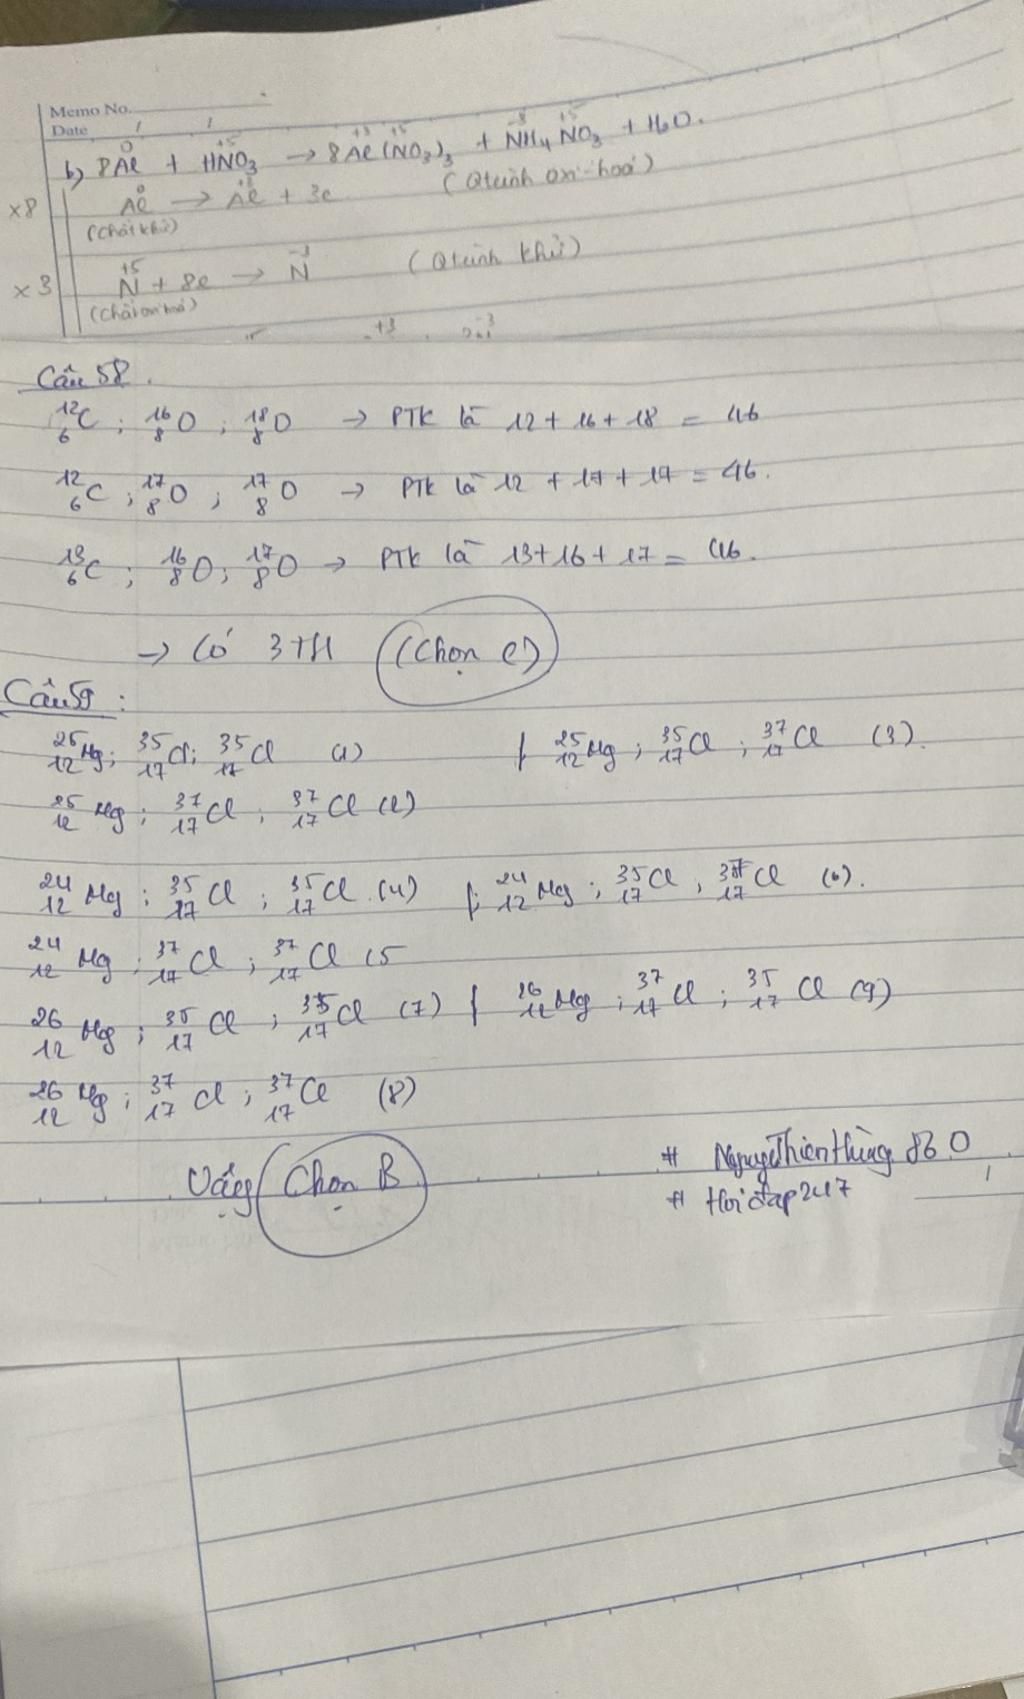 Memo No.
Date / /
b) 8Al⁰ + HN⁺⁵O₃ → 8Al⁺³(N⁺⁵O₃)₃ + N⁻³H₄N⁺⁵O₃ + H₂O.
x8 Al⁰ → Al⁺³ + 3e (Qtrình oxi-hoá)
(chất khử)
x3 N⁺⁵ + 8e → N⁻³ (Qtrình khử)
(chất oxi hoá)
+3 -3
Câu 58.
¹²₆C ; ¹⁶₈O ; ¹⁸₈O → PTK là 12 + 16 + 18 = 46
¹²₆C ; ¹⁷₈O ; ¹⁷₈O → PTK là 12 + 17 + 17 = 46.
¹³₆C ; ¹⁶₈O ; ¹⁷₈O → PTK là 13 + 16 + 17 = 46.
→ Có 3 TH (Chọn C)
Câu 59 :
²⁵₁₂Mg ; ³⁵₁₇Cl ; ³⁵₁₇Cl (1) | ²⁵₁₂Mg ; ³⁵₁₇Cl ; ³⁷₁₇Cl (3).
²⁵₁₂Mg ; ³⁷₁₇Cl ; ³⁷₁₇Cl (2)
²⁴₁₂Mg ; ³⁵₁₇Cl ; ³⁵₁₇Cl (4) | ²⁴₁₂Mg ; ³⁵₁₇Cl ; ³⁷₁₇Cl (6).
²⁴₁₂Mg ; ³⁷₁₇Cl ; ³⁷₁₇Cl (5
²⁶₁₂Mg ; ³⁵₁₇Cl ; ³⁵₁₇Cl (7) | ²⁶₁₂Mg ; ³⁷₁₇Cl ; ³⁵₁₇Cl (9)
²⁶₁₂Mg ; ³⁷₁₇Cl ; ³⁷₁₇Cl (8)
Vậy Chọn B
# NguyeThienHung860
# Hoidap247